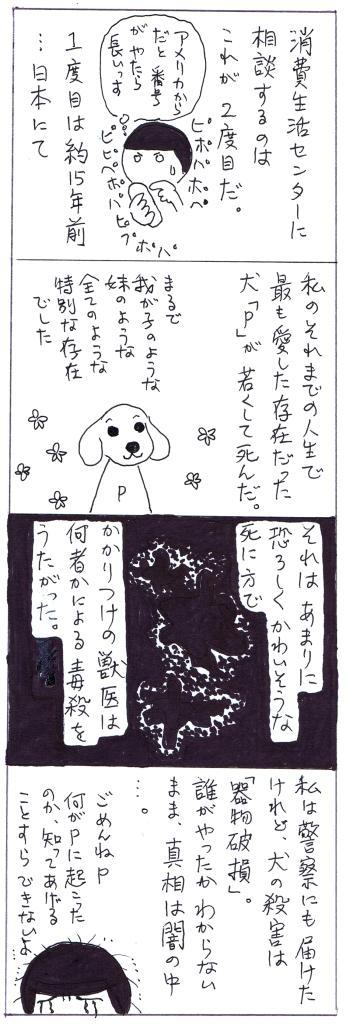 消費生活センターに
相談するのは
これが2度目だ。
アメリカから
だと番号
がやたら
長いっす
ピポパポペ
ピピペポパピプポパ
1度目は約15年前
…日本にて
私のそれまでの人生で
最も愛した存在だった
犬「P」が若くして死んだ。
まるで
我が子のような
妹のような
全てのような
特別な存在
でした
P
それはあまりに
恐ろしくかわいそうな
死に方で
かかりつけの獣医は
何者かによる毒殺を
うたがった。
私は警察にも届けた
けれど、犬の殺害は
「器物破損」。
誰がやったかわからない
まま、真相は闇の中
…。
ごめんねP
何がPに起こった
のか、知ってあげる
ことすらできないよ